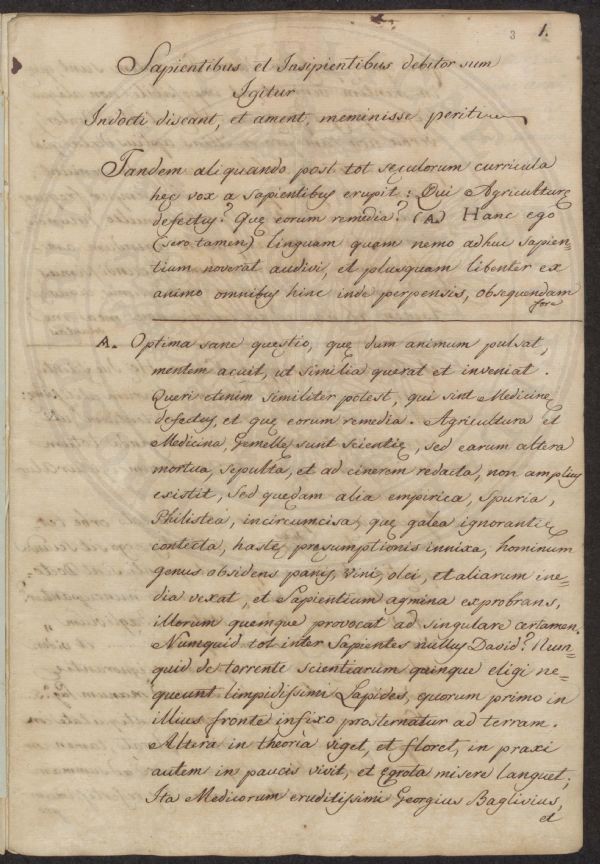 3 1.
Sapientibus et Insipientibus debitor sum
Igitur
Indocti discant, et ament, meminisse periti
Tandem aliquando post tot seculorum curricula
hęc vox a sapientibus erupit: Qui Agriculturę
defectus? Quę eorum remedia? (A.) Hanc ego
(sero tamen) linguam quam nemo adhuc sapien=
tium noverat audivi, et plusquam libenter ex
animo omnibus hinc inde perpensis, obsequendam
fore
A. Optima sane quęstio, quę dum animum pulsat,
mentem acuit, ut similia querat et inveniat.
Queri etenim similiter potest, qui sint Medicinę
defectus, et quę eorum remedia. Agricultura et
Medicina Gemellę sunt scientię, sed earum altera
mortua, sepulta, et ad cinerem redacta, non amplius
existit, sed quędam alia empirica, spuria,
Philistea, incircumcisa, quę galea ignorantię
contecta, hastę presumptionis innixa, hominum
genus obsidens panis, vini, olei, et aliarum ine=
dia vexat, et Sapientium agmina exprobrans,
illorum quemque provocat ad singulare certamen.
Numquid tot inter Sapientes nullus David? Num=
quid de torrente scientiarum quinque eligi ne=
queunt limpidissimi Lapides, quorum primo in
illius fronte infixo prosternatur ad terram.
Altera in theoria viget, et floret, in praxi
autem in paucis vivit, et Egrota misere languet;
Ita Medicorum eruditissimi Georgius Baglivius,
et